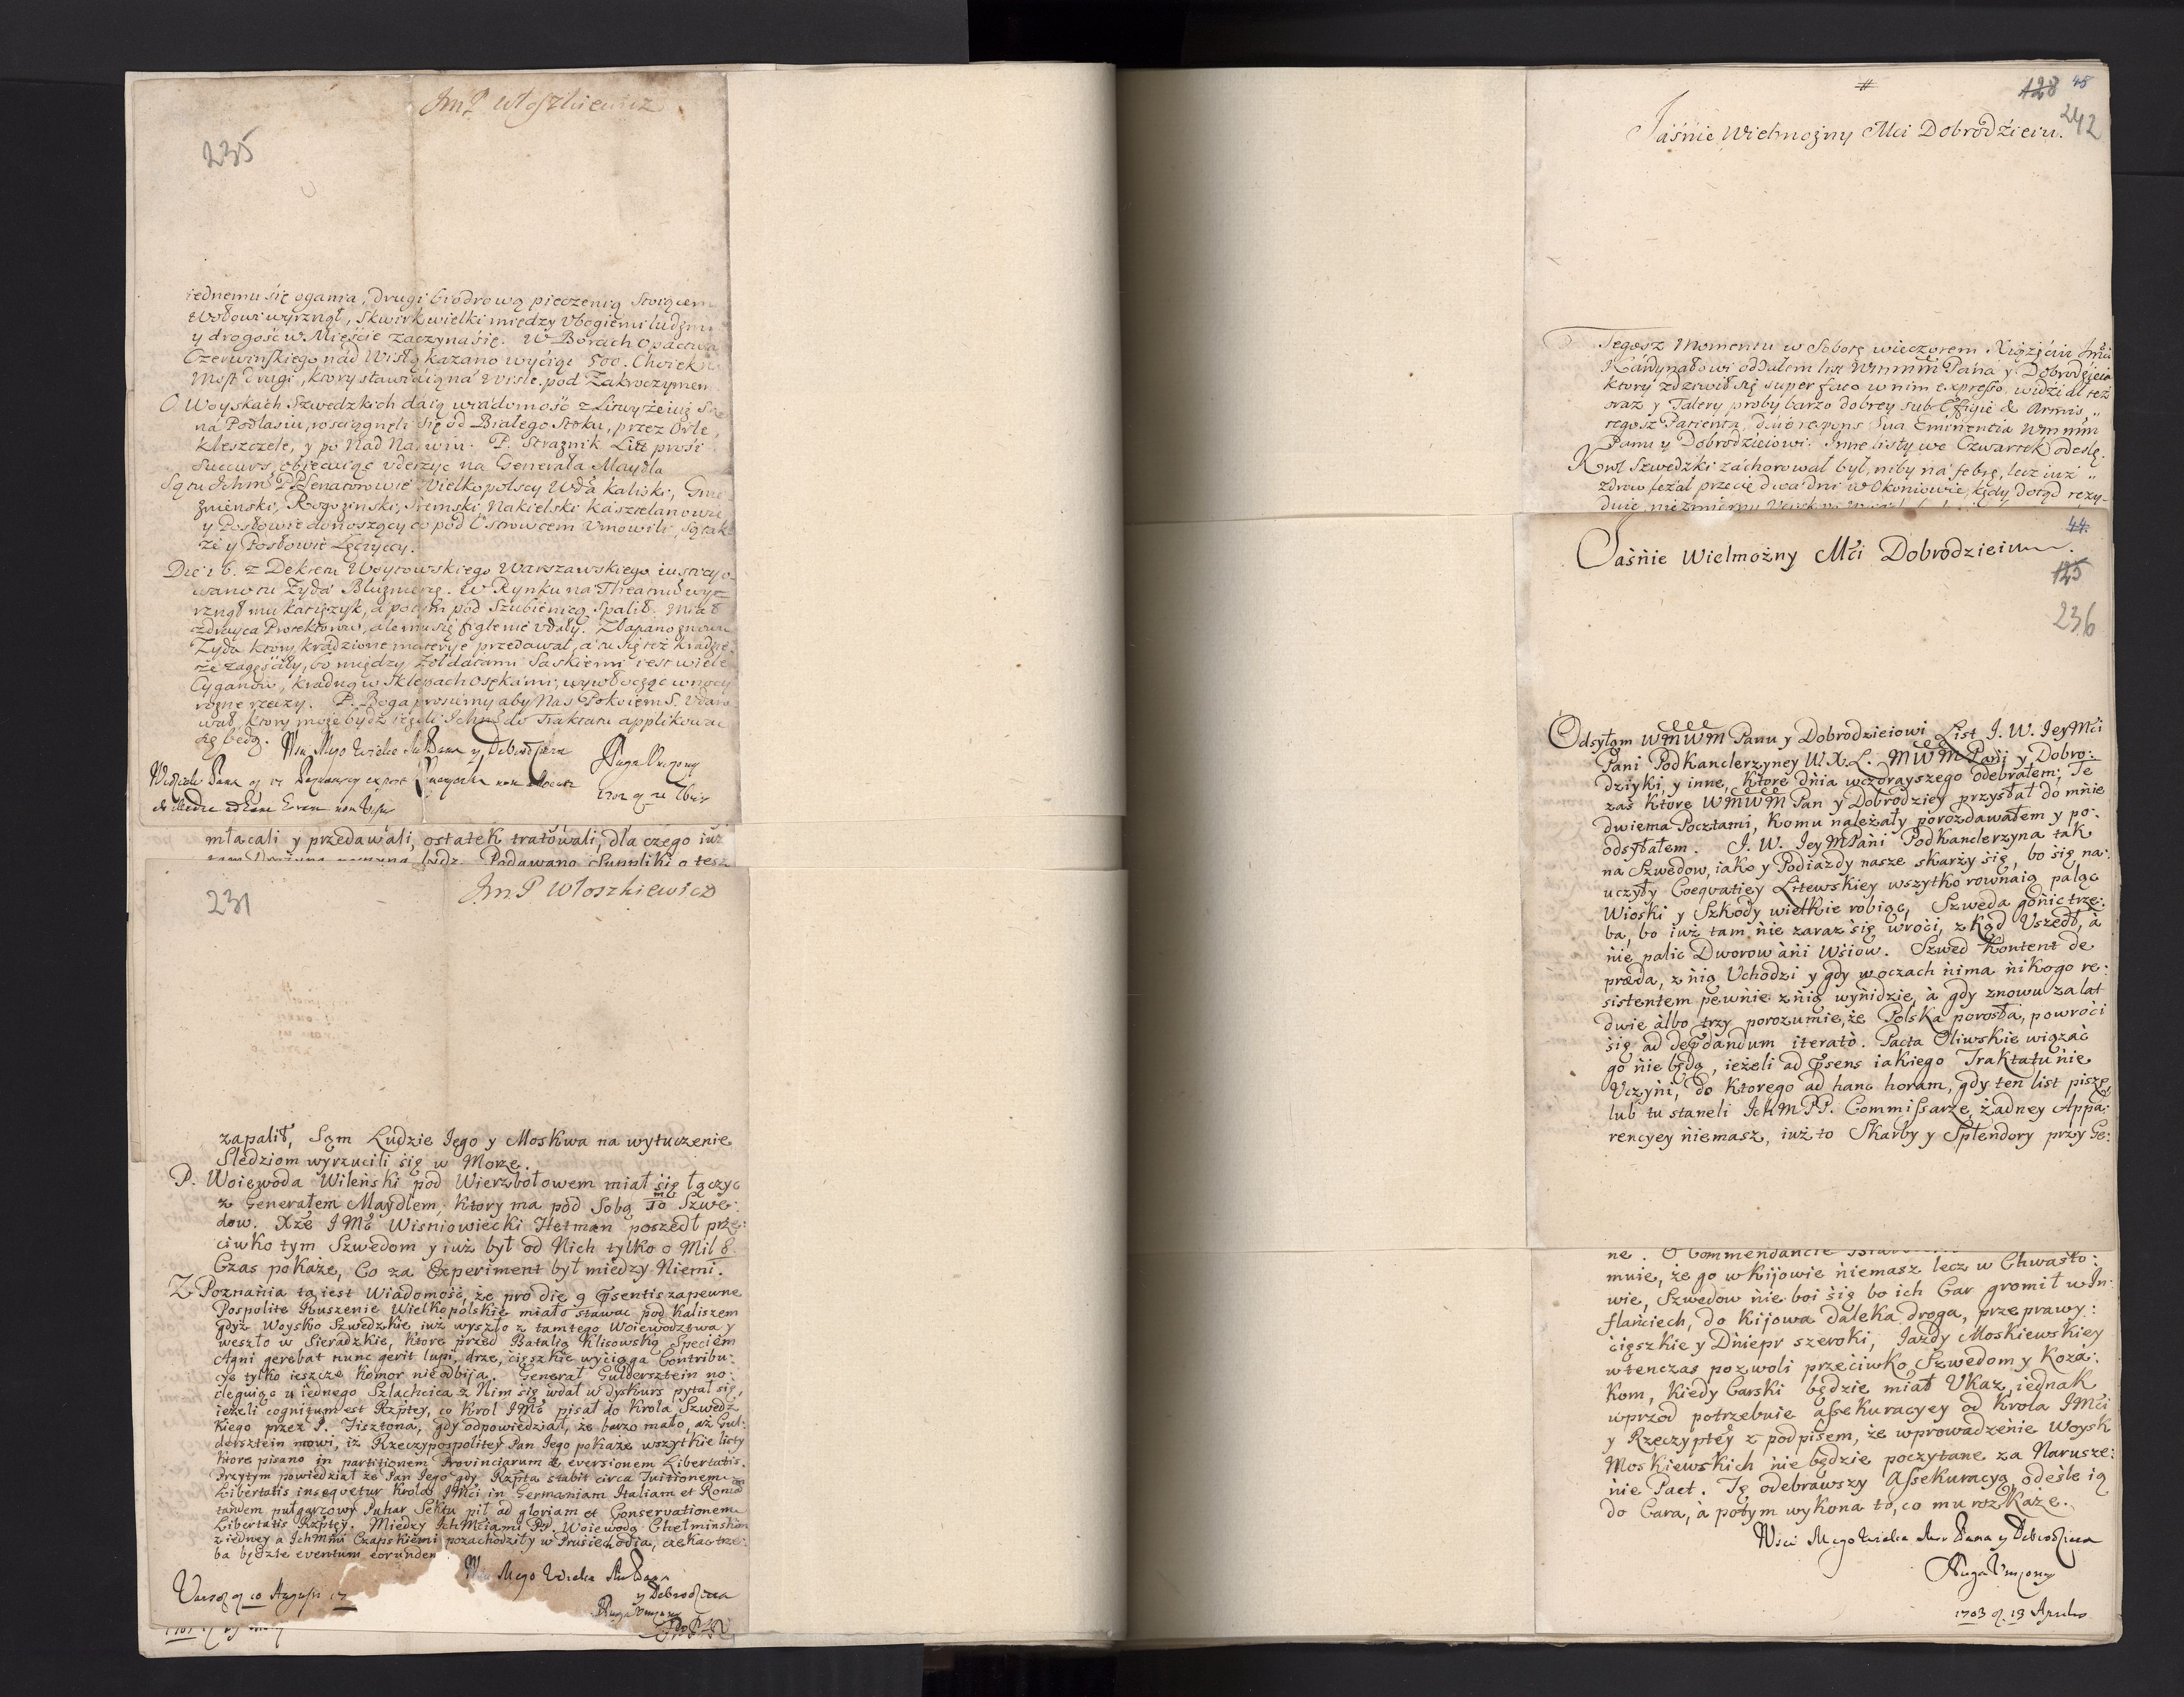 Jm P Włoszkiewicz
235
iednemu się ogania, drugi biodrową pieczenią stoiącem
Wołowi wyrznął, skwirk wielki między Vbogiemi ludzmi
y drogość w Mieście zaczyna się. W Borach Opactwa
Czerwinskiego nad Wisłą kazano wyciąc 500. Choiek na
Most drugi, ktory stawiaią na Wisle pod Zakroczymem
O Woyskach Szwedzkich daią wiadomość z Litwy że iuż są
na Podlasiu, rosciągneli się od Białego Stoku, przez Orle,
Kleszczele, y po Nad Narwiu. P. Straznik Litt prosi
Succurs, obiecuiąc vderzyc na Generała Maydla
Są tu Ichm PP Senatorowie Wielkopolscy Wda Kaliski, Gnie
znienski, Rogozinski, Sremski Nakielski Kasztelanowie
y Posłowie donoszący co pod Ostrowcem Vmowili, są tak
że y Posłowie Łęczyccy.
Die 16. z Dekretu Woytowskiego Warszawskiego iustycyo-
wano tu Żyda Bluznierę. W Rynku na Theatrum wyr-
rznął mu kat ięzyk, a potym pod Szubienicą spalił. Miał
zdrayca Protektorow, ale mu się figle nie vdały. Złapano znowu
Żyda ktory kradzione materye przedawał, a tu się też kradzie-
że zagęściły, bo między Żołdatami Saskiemi iest wiele
Cyganow, kradną w Sklepach osękami, wywłocząc w nocy
rożne rzeczy. P. Boga prosiemy aby Nas Pokoiem S. Vdaro
wał, ktory może bydz ieżeli Ichm do Traktatu applikowac
się będą. Wm Mego Wielce Mci Pana y Dobrodzieia
Sługa Vnizony
młacali y przedawali, ostatek tratowali, dla czego iuż
Podawano Suppliki o tesz
231
Jm P Włoszkiewicz
zapalił, Sąm Ludzie Jego y Moskwa na wytuczenie
Sledziom wyrzucili się w Morze.
P. Woiewoda Wileński pod Wierzbołowem miał się łączyc
z Generałem Maydlem, ktory ma pod Sobą 10 Szwe:
dow. Xże JMć Wisniowiecki Hetman poszedł prze:
ciwko tym Szwedom y iuż był od Nich tylko o Mil 8.
Czas pokaże, Co za Experiment był miedzy Niemi.
Z Poznania ta iest Wiadomość, że pro die 9 psentis zapewne
Pospolite Ruszenie Wielkopolskie miało stawac pod Kaliszem
gdyż Woysko Szwedzkie iuż wyszło z tamtego Woiewodztwa y
weszło w Sieradzkie, ktore przed Batalią Klisowską Speciem
Agni gerebat nunc gerit lupi, drze, cięszkie wyciąga Contribu:
cye tylko ieszcze Komor nieodbija. Generał Guldersztein no:
cleguiąc u iednego Szlachcica z Nim się wdał w dyskurs pytał się,
ieżeli cognitum est Rzptey, co Krol JMć pisał do Krola Szwedz
kiego przez P. Fisztona, gdy odpowiedział, że barzo mało, aż Gul:
dersztein mowi, iż Rzeczypospolitey Pan Jego pokaże wszytkie listy
ktore pisano in partitionem Provinciarum & eversionem Libertatis.
Przytym powiedział że Pan Jego gdy Rzpta stabit circa Tuitionem
Libertatis insequetur Krola JMci in Germaniam Italiam et Romam
tandem pułgarcowy Puhar Sektu pił ad gloriam et Conservationem
Libertatis Rzptey. Miedzy IchMciami PP. Woiewodą Chełminskim
z iedney a IchMmi Czapskiemi pozachodziły w Prusiech odia, czekac trze:
ba będzie eventum eorunden
Wm Mego Wielce Mci Pana
y Dobrodzieia
Sługa Vnizony
Varsov. 10 Augusti
#
128 48
242
Jaśnie Wielmożny Mci Dobrodzieiu.
Tegosz Momentu w Sobotę wieczorem Xiążęciu Jmci
Kardynałowi oddałem list Wmmm Pana y Dobrodzieia
ktory zdziwił się super facto w nim expresso, widział też
oraz y Talery proby barzo dobrey sub Effigie & Armis
tegosz Patienta, daie respons Sua Eminentia Wmmm
Panu y Dobrodzieiowi. Inne listy we Czwartek odeslę.
Krol Szwedzki zachorował był, niby na febrę, lecz iuż
zdrow leżał przecię dwa dni w Okoniowie, kędy dotąd rezy-
duie
44.
Jaśnie Wielmożny Mći Dobrodzieiu.
125
236
Odsyłąm WMWM Panu y Dobrodzieiowi List J. W. JeyMći
Pani Podkanclerzyney W. X. L. MWM Panij y Dobro:
dziyki, y inne, ktore dnia wczorayszego odebrałem; Te
zas ktore WMWM Pan y Dobrodziey przysłał do mnie
dwiema Pocztami, komu należały porozdawałem y po:
odsyłałem. J. W. JeyMPani Podkanclerzyna tak
na Szwedow, iako y Podiazdy nasze skarży się, bo się na:
uczyły Coequatiey Litewskiey wszytko rownaią paląc
Wioski y Szkody wielkie robiąc, Szweda gonic trze:
ba, bo iuż tam nie zaraz się wroci, zkąd Uszedł, a
nie palic Dworow ani Wsiow. Szwed Kontent de
præda, z nią Uchodzi y gdy w oczach nima nikogo re:
sistentem pewnie z nią wynidzie, à gdy znowu za lat
dwie albo trzy porozumie, że Polska porosła, powroci
się ad depdandum iteratò. Pacta Oliwskie wiązać
go nie będą, ieżeli ad psens iakiego Traktatu nie
Uczyni, do ktorego ad hanc horam, gdy ten list piszę,
lub tu staneli IchMPP. Commissarze, żadney Appa:
rencyey niemasz, iuż to Skarby y Splendory przy Ge:
ne. O Commendancie
muie, że go w Kijowie niemasz lecz w Chwasto:
wie, Szwedow nie boi się bo ich Car gromił w In:
flanciech, do Kijowa daleka droga, przeprawy
cięszkie y Dniepr szeroki, Jazdy Moskiewskiey
wtenczas pozwoli przeciwko Szwedom y Koza:
kom, kiedy Carski będzie miał Ukaz, iednak
wprzod potrzebuie assekuracyey od Krola JMći
y Rzeczyptey z podpisem, że wprowadzenie Woysk
Moskiewskich nie będzie poczytane za Narusze:
nie Pact. Tę odebrawszy Assekuracyą odeśle ią
do Cara, à potym wykona to, co mu rozkaże.
Wm Mego Wielce Mci Pana y Dobrodzieia
Sługa Vnizony
1703 d. 13 Aprilis